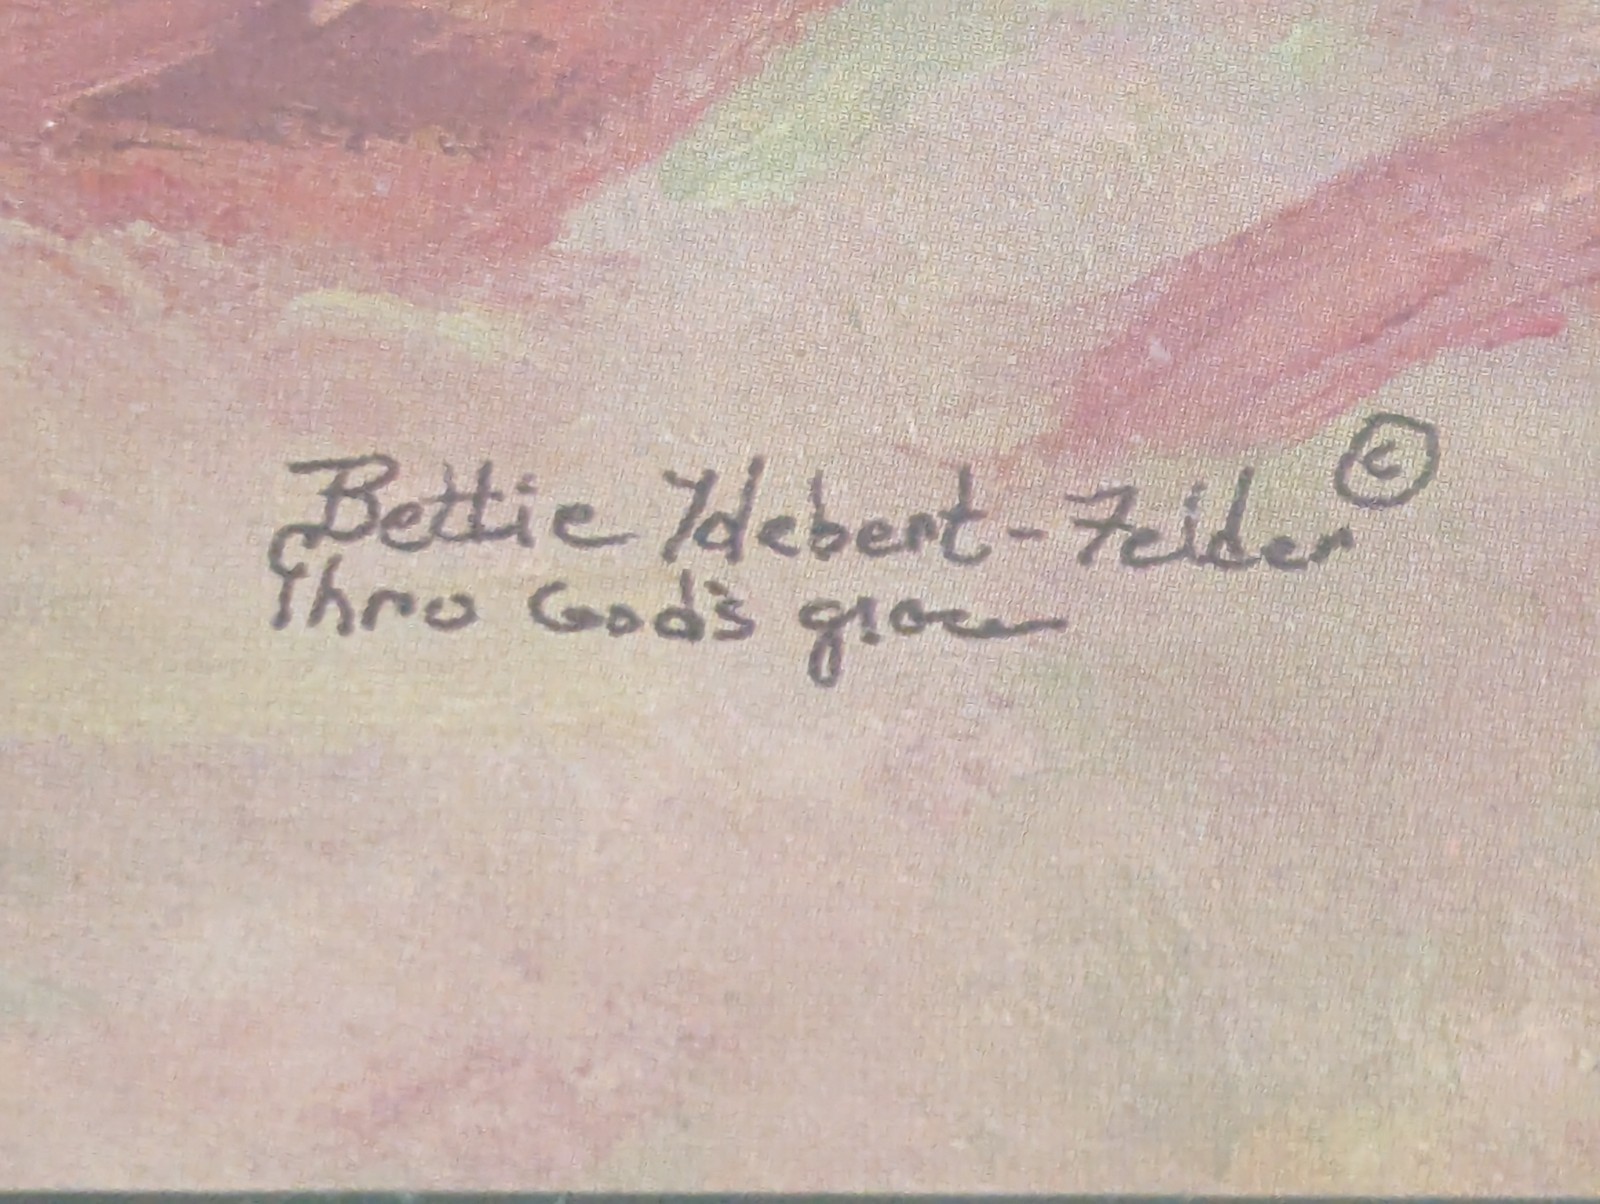 Bettie Hebert-Felder ©
Thro God's grace